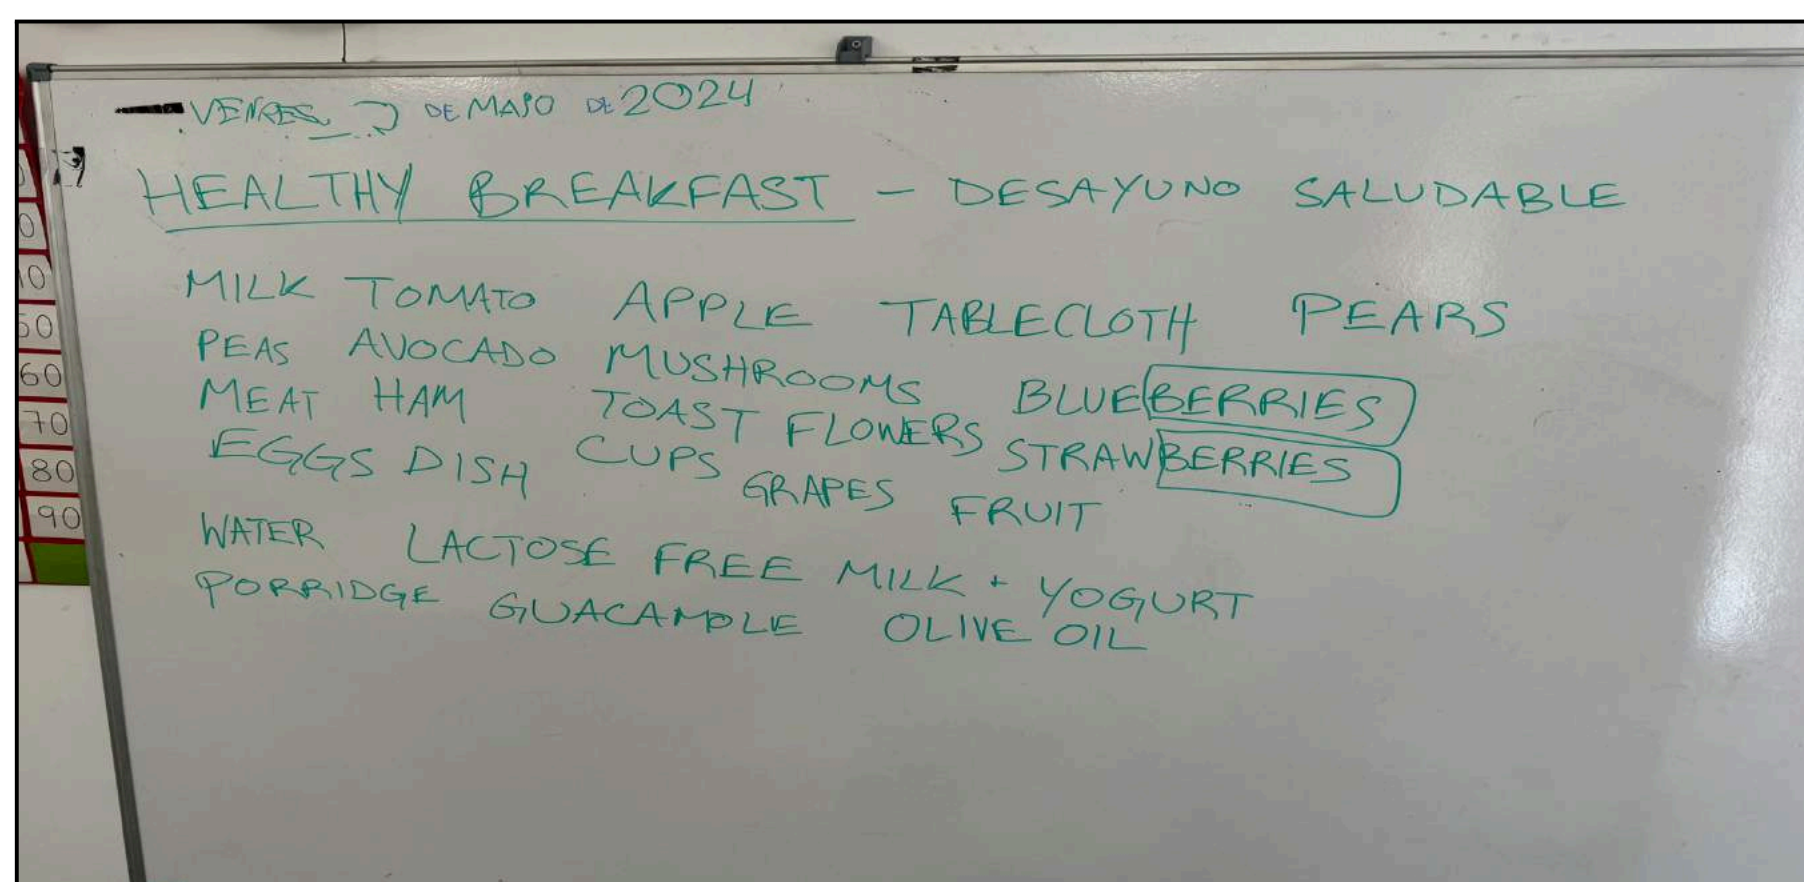 VENRES DE MAIO DE 2024
HEALTHY BREAKFAST - DESAYUNO SALUDABLE
MILK TOMATO APPLE TABLECLOTH PEARS
PEAS AVOCADO MUSHROOMS BLUEBERRIES
MEAT HAM TOAST FLOWERS STRAWBERRIES
EGGS DISH CUPS GRAPES FRUIT
WATER LACTOSE FREE MILK + YOGURT
PORRIDGE GUACAMOLE OLIVE OIL
60
70
80
90